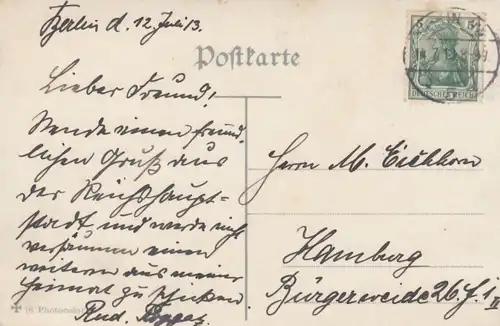 Berlin d. 12 Juli 13.
Postkarte
Lieber Freund!
Sende einen freund-
lichen Gruß aus
der Reichshaupt-
stadt und werde nicht
versäumen einen
weitern aus meiner
Heimat zu schicken
Rud.
Herrn M. Eichhorn
Hamburg
Bürgerweide 26 f. 1 II
5 5
DEUTSCHES REICH